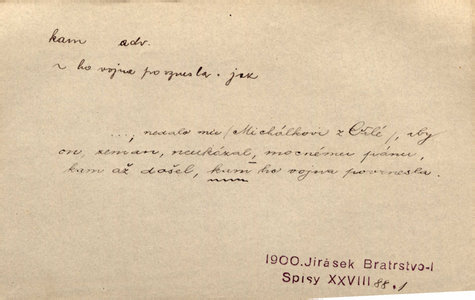 kam adv.
ho vojna povznesla. jak
..., nedalo mu (Michálkovi z Orlé), aby
on, zeman, neukázal, mocnému pánu,
kam až došel, kam ho vojna povznesla.
1900. Jirásek Bratrstvo-I
Spisy XXVIII 88.1